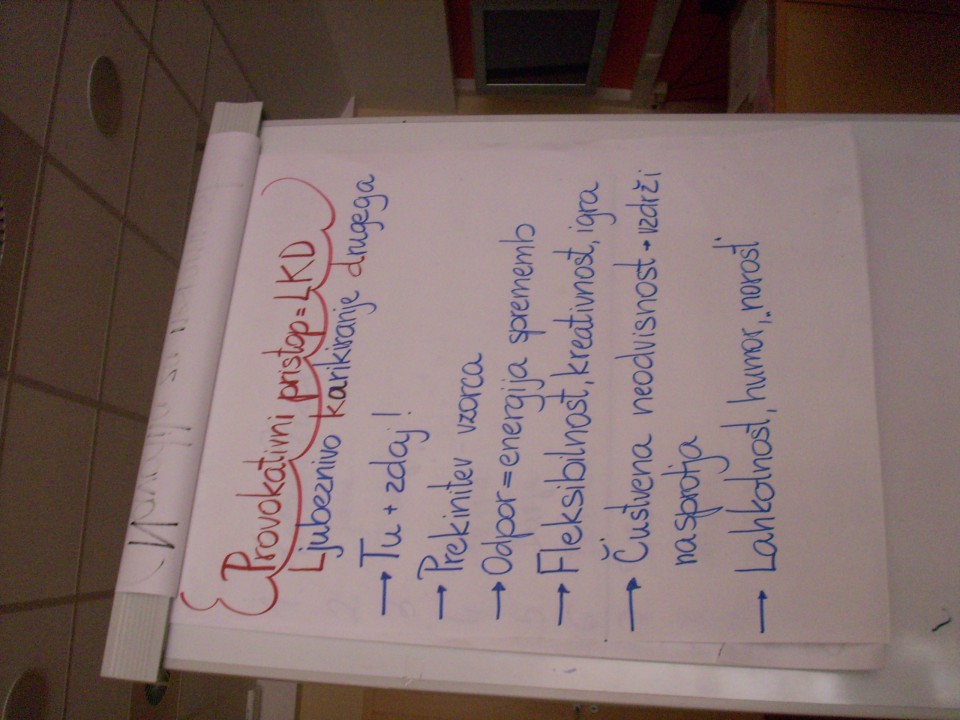 Provokativni pristop = LKD
Ljubeznivo karikiranje drugega
→ Tu + zdaj!
→ Prekinitev vzorca
→ Odpor = energija sprememb
→ Fleksibilnost, kreativnost, igra
→ Čustvena neodvisnost → vzdrži
nasprotja
→ Lahkotnost, humor, "norost"